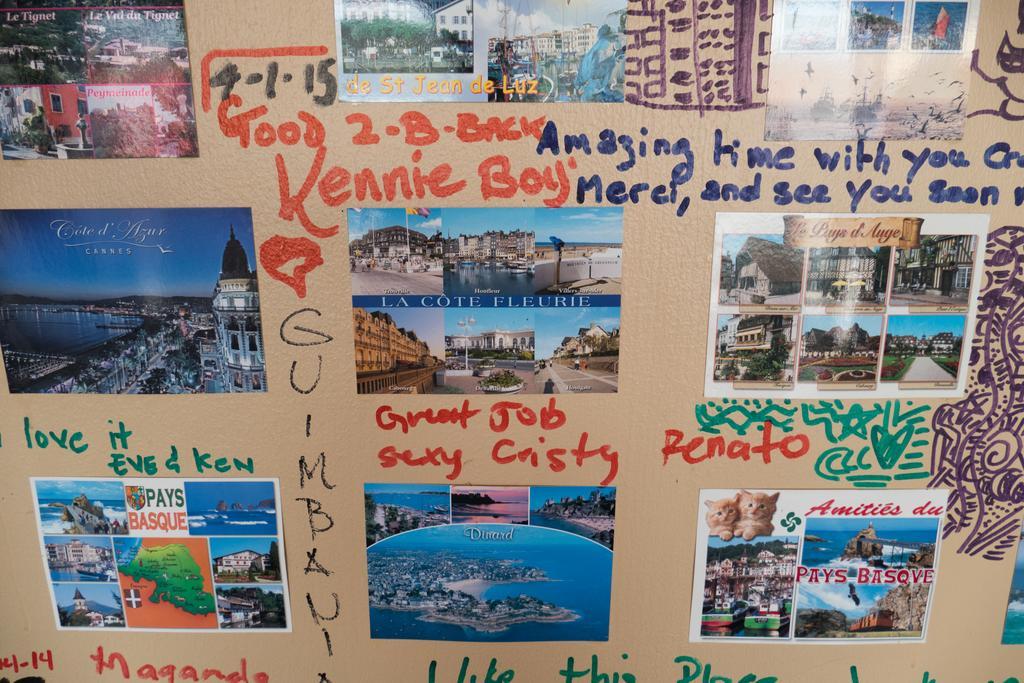 Le Tignet
Le Val du Tignet
Peymeinade
de St Jean de Luz
4-1-15
Good 2-B-Back
Kennie Boy
Amazing time with you
Merci, and see you soon
Côte d'Azur
CANNES
Trouville
Honfleur
LA CÔTE FLEURIE
Cabourg
Deauville
Houlgate
le Pays d'Auge
GUIMBAUI
Great Job
sexy Cristy
Renato
I love it
EVE & KEN
PAYS
BASQUE
Dinard
Amitiés du
PAYS BASQUE
14-14
Maganda
I like this Place